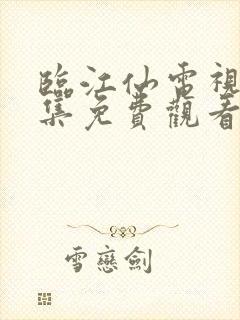 臨江仙電視
集免費觀看
雪戀劍